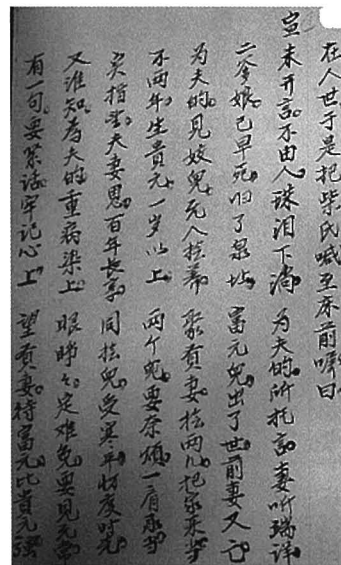 在人世于是把柴氏喊至床前嘱曰
宣未开言不由人珠泪下淌 为夫的所托言妻听端详
二爹娘已早死归了泉址 富元儿出了世前妻又亡
为夫的见姣儿无人 聚贵妻 两儿把家来当
不两年生贵元一岁以上 两个儿要尔烦一肩承当
实指望夫妻恩百年长享 同 儿受寒年好度时光
又谁知为夫的重病染上 眼睁々定难免要见无常
有一句要紧话牢记心上 望贤妻待富元比贵元强